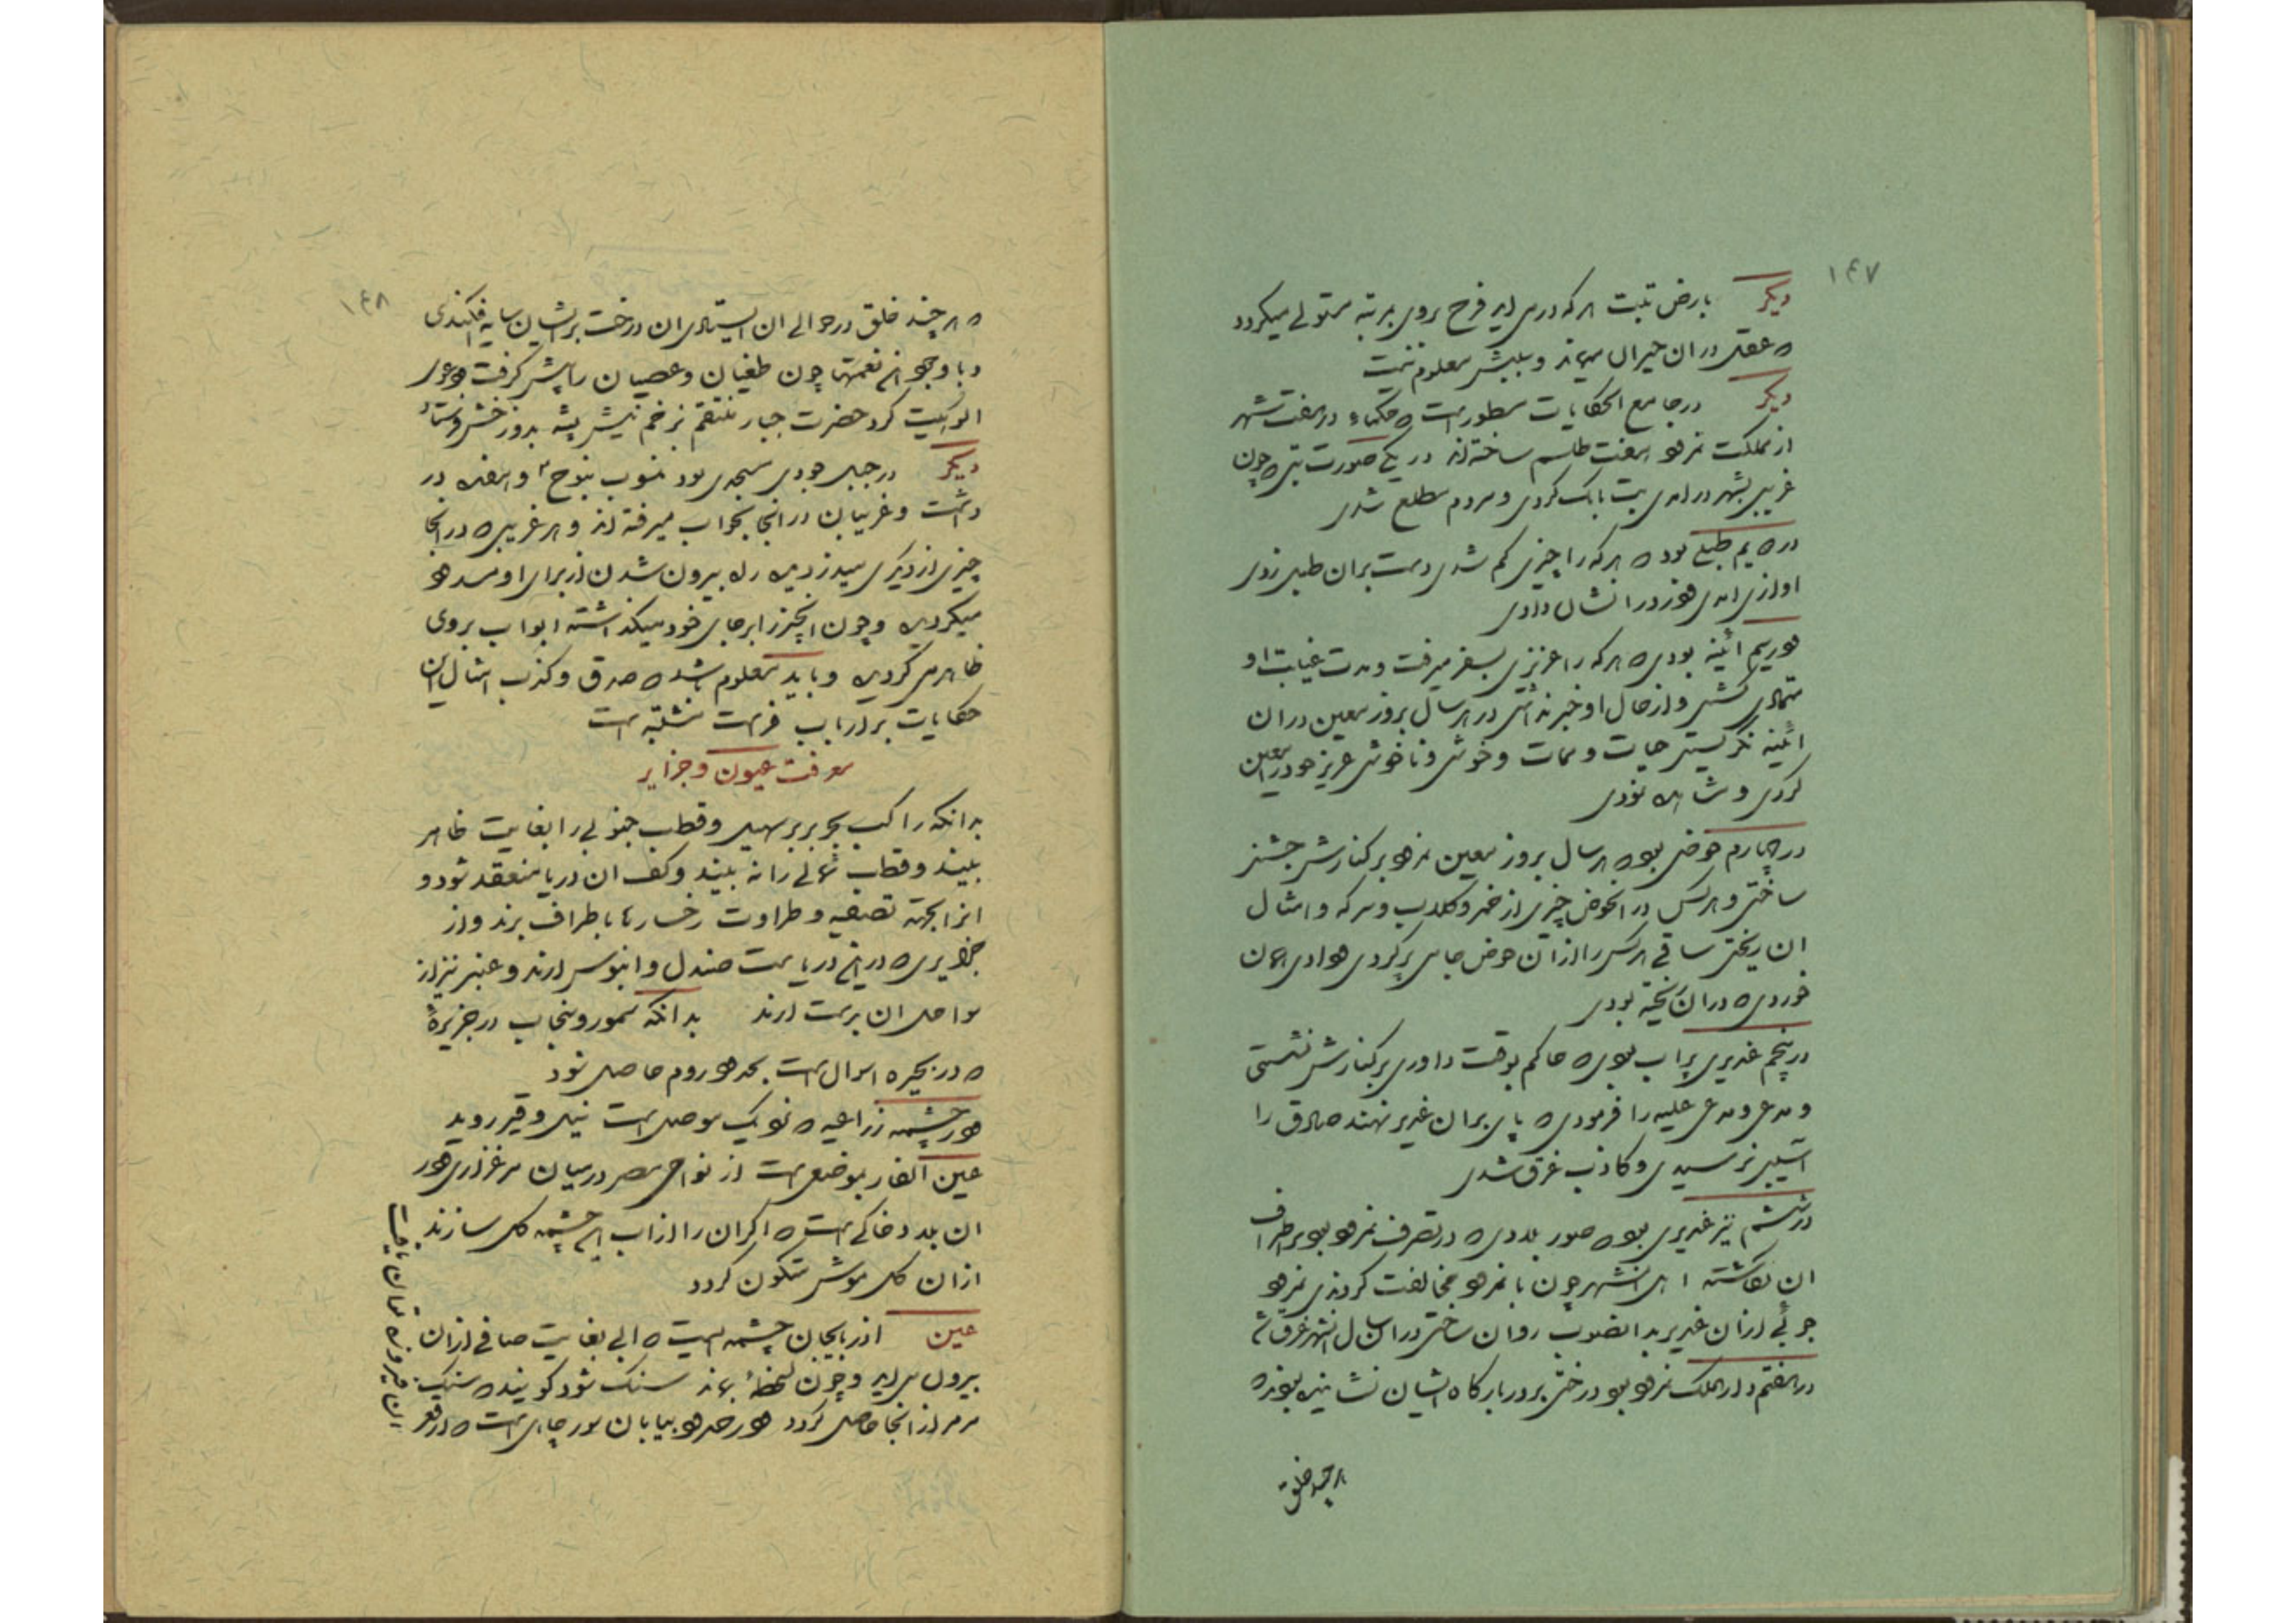 ۱۴۷
دیکر بارض تبت هرکه دراید فرح بروی بمرتبه مستولے میکردد
که عقل دران حیران میماند و سببش معلوم نیست
دیکر در جامع الحکایات مسطورست که حکماء در هفت شهر
از مملکت نمرود هفت طلسم ساخته‌اند در یکے صورت بتی که چون
غریبی بشهر درامدی بت بانک کردی و مردم مطلع شدی
در دویم طبلے بود که هرکه را چیزی کم شدی دست بران طبل زدی
اوازی امدی و دزد را نشان دادی
در سیم ائینه بودی که هرکه را عزیزی بسفر میرفت و مدت غیبت او
متمادی کشتی و از حال او خبر نداشتی در هر سال بروز معین دران
ائینه نکریستی حیات و ممات و خوشی و ناخوشی عزیز خود در
کردی و مشاهده نمودی
در چهارم حوضی بود که هر سال بروز معین نمرود بر کنارش جشنی
ساختی و هرکس در انحوض چیزی از خمر و کلاب و سرکه و امثال
ان ریختی ساقے هرکس را از ان حوض جامی پر کردی و دادی همان
خوردی که دران ریخته بودی
در پنجم غدیری پر اب بودی که حاکم بوقت داوری بر کنارش نشستی
و مدعی و مدعی علیه را فرمودی که پای بران غدیر نهند صادق را
آسیبی نرسیدی و کاذب غرق شدی
در ششم نیز غدیری بود که صور بلادی که در تصرف نمرود بود بر اطراف
ان نکاشته اهل انشهر چون با نمرود مخالفت کردندی نمرود
جوئے از ان غدیر بدانصوب روان ساختی دران سال انشهر غرق شدی
در هفتم دار الملک نمرود بود درختی بر در بارکاه ایشان نشانیده بودند که
هر چند خلق
۱۴۸
که هر چند خلق در حوالے ان ایستادی ان درخت بر ایشان سایه افکندی
و با وجود این نعمتها چون طغیان و عصیان را پیش کرفت و دعوی
الوهیت کرد حضرت جبار منتقم بزخم نیش پشه بدوزخش فرستاد
دیکر در جبل جودی مسجدی بود منسوب بنوح و هفده در
داشت و غریبان در انجا بخواب میرفته‌اند و هر غریبی که در انجا
چیزی از دیکری میدزدیده راه بیرون شدن از برای او مسدود
میکردیده و چون انچیز را بر جای خود میکذاشته ابواب بروی
ظاهر می کردیده و باید معلوم باشد که صدق و کذب امثال این
حکایات بر ارباب فراست مشتبه است
معرفت عیون و جزایر
بدانکه راکب بحر بربر سهیل و قطب جنوبے را بغایت ظاهر
بیند و قطب شمالے را نه بیند و کف ان دریا منعقد شود و
انرا بجهة تصفیه و طراوت رخسارها باطراف برند و از
جزایری که در این دریاست صندل و ابنوس ارند و عنبر نیز از
سواحل ان بدست ارند بدانکه سمور و سنجاب در جزیرهٔ
که در بحیره است بحدود روم حاصل شود
در چشمه زراعیه که نزدیک موصل است نیل و قیر روید
عین الفار بموضعی است از نواحی مصر در میان مرغزاری و در
ان بلد و خاکے است که اکر ان را از اب این چشمه کل سازند
ازان کل موش متکون کردد
عین اذربایجان چشمه ایست که ابی بغایت صافے ازان
بیرون می اید و چون لحظهٔ بماند سنک شود کویند که سنک
مرمر از انجا حاصل کردد و در حدود بیابان مور چاهی است که در قعر
ان فیروزه توان یافت